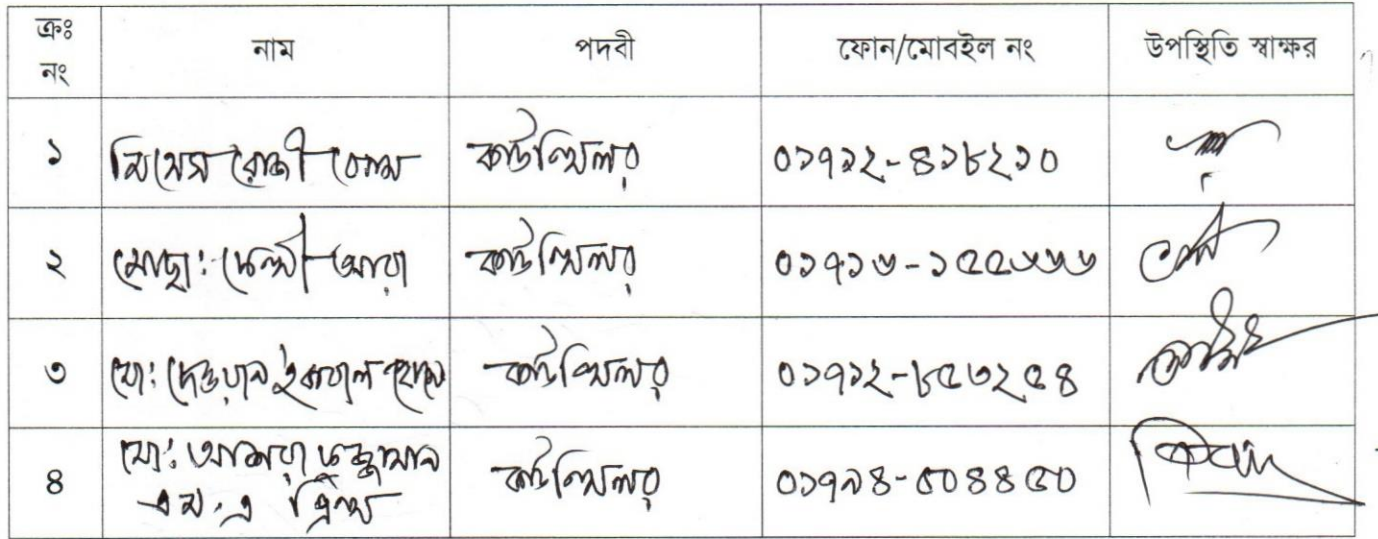 ক্রঃ নং নাম পদবী ফোন/মোবইল নং উপস্থিতি স্বাক্ষর
১ মিসেস রোজী বেগম কাউন্সিলর ০১৭১২-৪১৮২১০
২ মোছা: আরা কাউন্সিলর ০১৭১৬-১৫৫৬৬৬
৩ মো: দেওয়ান ইকবাল হোসেন কাউন্সিলর ০১৭১২-৮৫৩২৫৪
৪ মো: আশরাফুজ্জামান কাউন্সিলর
এম.এ প্রিন্স